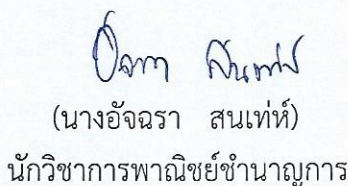 (นางอัจฉรา สนเท่ห์)
นักวิชาการพาณิชย์ชำนาญการ